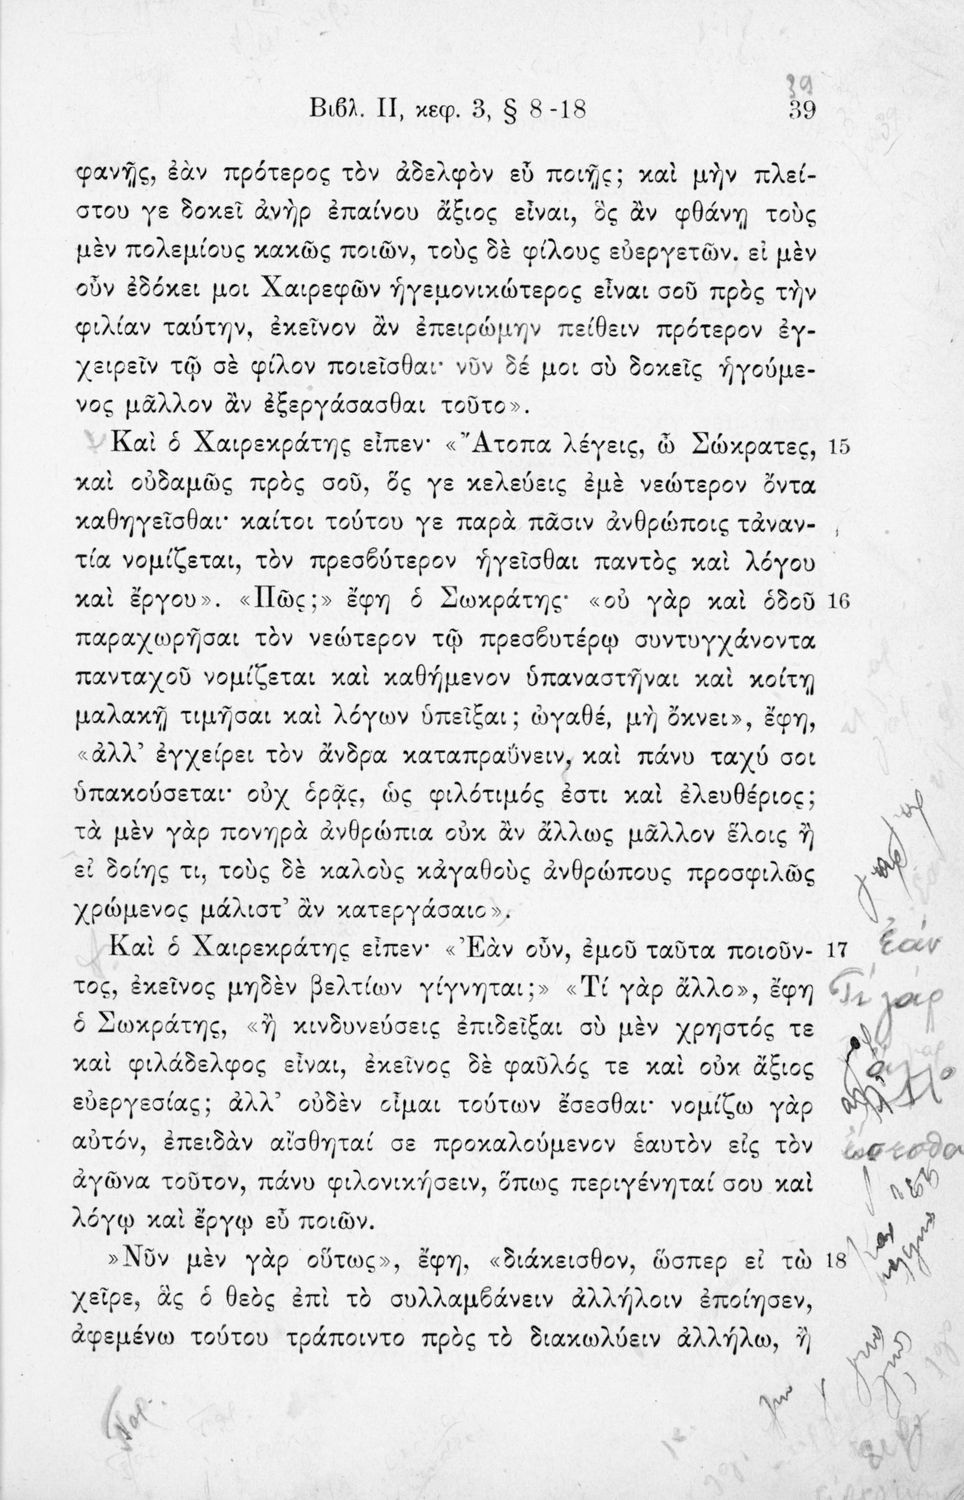 39
Βιβλ. II, κεφ. 3, § 8-18 39
φανῇς, ἐὰν πρότερος τὸν ἀδελφὸν εὖ ποιῇς; καὶ μὴν πλεί-
στου γε δοκεῖ ἀνὴρ ἐπαίνου ἄξιος εἶναι, ὃς ἂν φθάνῃ τοὺς
μὲν πολεμίους κακῶς ποιῶν, τοὺς δὲ φίλους εὐεργετῶν. εἰ μὲν
οὖν ἐδόκει μοι Χαιρεφῶν ἡγεμονικώτερος εἶναι σοῦ πρὸς τὴν
φιλίαν ταύτην, ἐκεῖνον ἂν ἐπειρώμην πείθειν πρότερον ἐγ-
χειρεῖν τῷ σὲ φίλον ποιεῖσθαι· νῦν δέ μοι σὺ δοκεῖς ἡγούμε-
νος μᾶλλον ἂν ἐξεργάσασθαι τοῦτο».
Καὶ ὁ Χαιρεκράτης εἶπεν· «Ἄτοπα λέγεις, ὦ Σώκρατες, 15
καὶ οὐδαμῶς πρὸς σοῦ, ὅς γε κελεύεις ἐμὲ νεώτερον ὄντα
καθηγεῖσθαι· καίτοι τούτου γε παρὰ πᾶσιν ἀνθρώποις τἀναν-
τία νομίζεται, τὸν πρεσβύτερον ἡγεῖσθαι παντὸς καὶ λόγου
καὶ ἔργου». «Πῶς;» ἔφη ὁ Σωκράτης· «οὐ γὰρ καὶ ὁδοῦ 16
παραχωρῆσαι τὸν νεώτερον τῷ πρεσβυτέρῳ συντυγχάνοντα
πανταχοῦ νομίζεται καὶ καθήμενον ὑπαναστῆναι καὶ κοίτῃ
μαλακῇ τιμῆσαι καὶ λόγων ὑπεῖξαι; ὠγαθέ, μὴ ὄκνει», ἔφη,
«ἀλλ’ ἐγχείρει τὸν ἄνδρα καταπραΰνειν, καὶ πάνυ ταχύ σοι
ὑπακούσεται· οὐχ ὁρᾷς, ὡς φιλότιμός ἐστι καὶ ἐλευθέριος;
τὰ μὲν γὰρ πονηρὰ ἀνθρώπια οὐκ ἂν ἄλλως μᾶλλον ἕλοις ἢ
εἰ δοίης τι, τοὺς δὲ καλοὺς κἀγαθοὺς ἀνθρώπους προσφιλῶς
χρώμενος μάλιστ’ ἂν κατεργάσαιο».
Καὶ ὁ Χαιρεκράτης εἶπεν· «Ἐὰν οὖν, ἐμοῦ ταῦτα ποιοῦν- 17
ἐάν
τος, ἐκεῖνος μηδὲν βελτίων γίγνηται;» «Τί γὰρ ἄλλο», ἔφη
Τί γάρ
ὁ Σωκράτης, «ἢ κινδυνεύσεις ἐπιδεῖξαι σὺ μὲν χρηστός τε
καὶ φιλάδελφος εἶναι, ἐκεῖνος δὲ φαῦλός τε καὶ οὐκ ἄξιος
εὐεργεσίας; ἀλλ’ οὐδὲν οἶμαι τούτων ἔσεσθαι· νομίζω γὰρ
αὐτόν, ἐπειδὰν αἴσθηταί σε προκαλούμενον ἑαυτὸν εἰς τὸν
ἀγῶνα τοῦτον, πάνυ φιλονικήσειν, ὅπως περιγένηταί σου καὶ
λόγῳ καὶ ἔργῳ εὖ ποιῶν.
»Νῦν μὲν γὰρ οὕτως», ἔφη, «διάκεισθον, ὥσπερ εἰ τὼ 18
χεῖρε, ἃς ὁ θεὸς ἐπὶ τὸ συλλαμβάνειν ἀλλήλοιν ἐποίησεν,
ἀφεμένω τούτου τράποιντο πρὸς τὸ διακωλύειν ἀλλήλω, ἢ